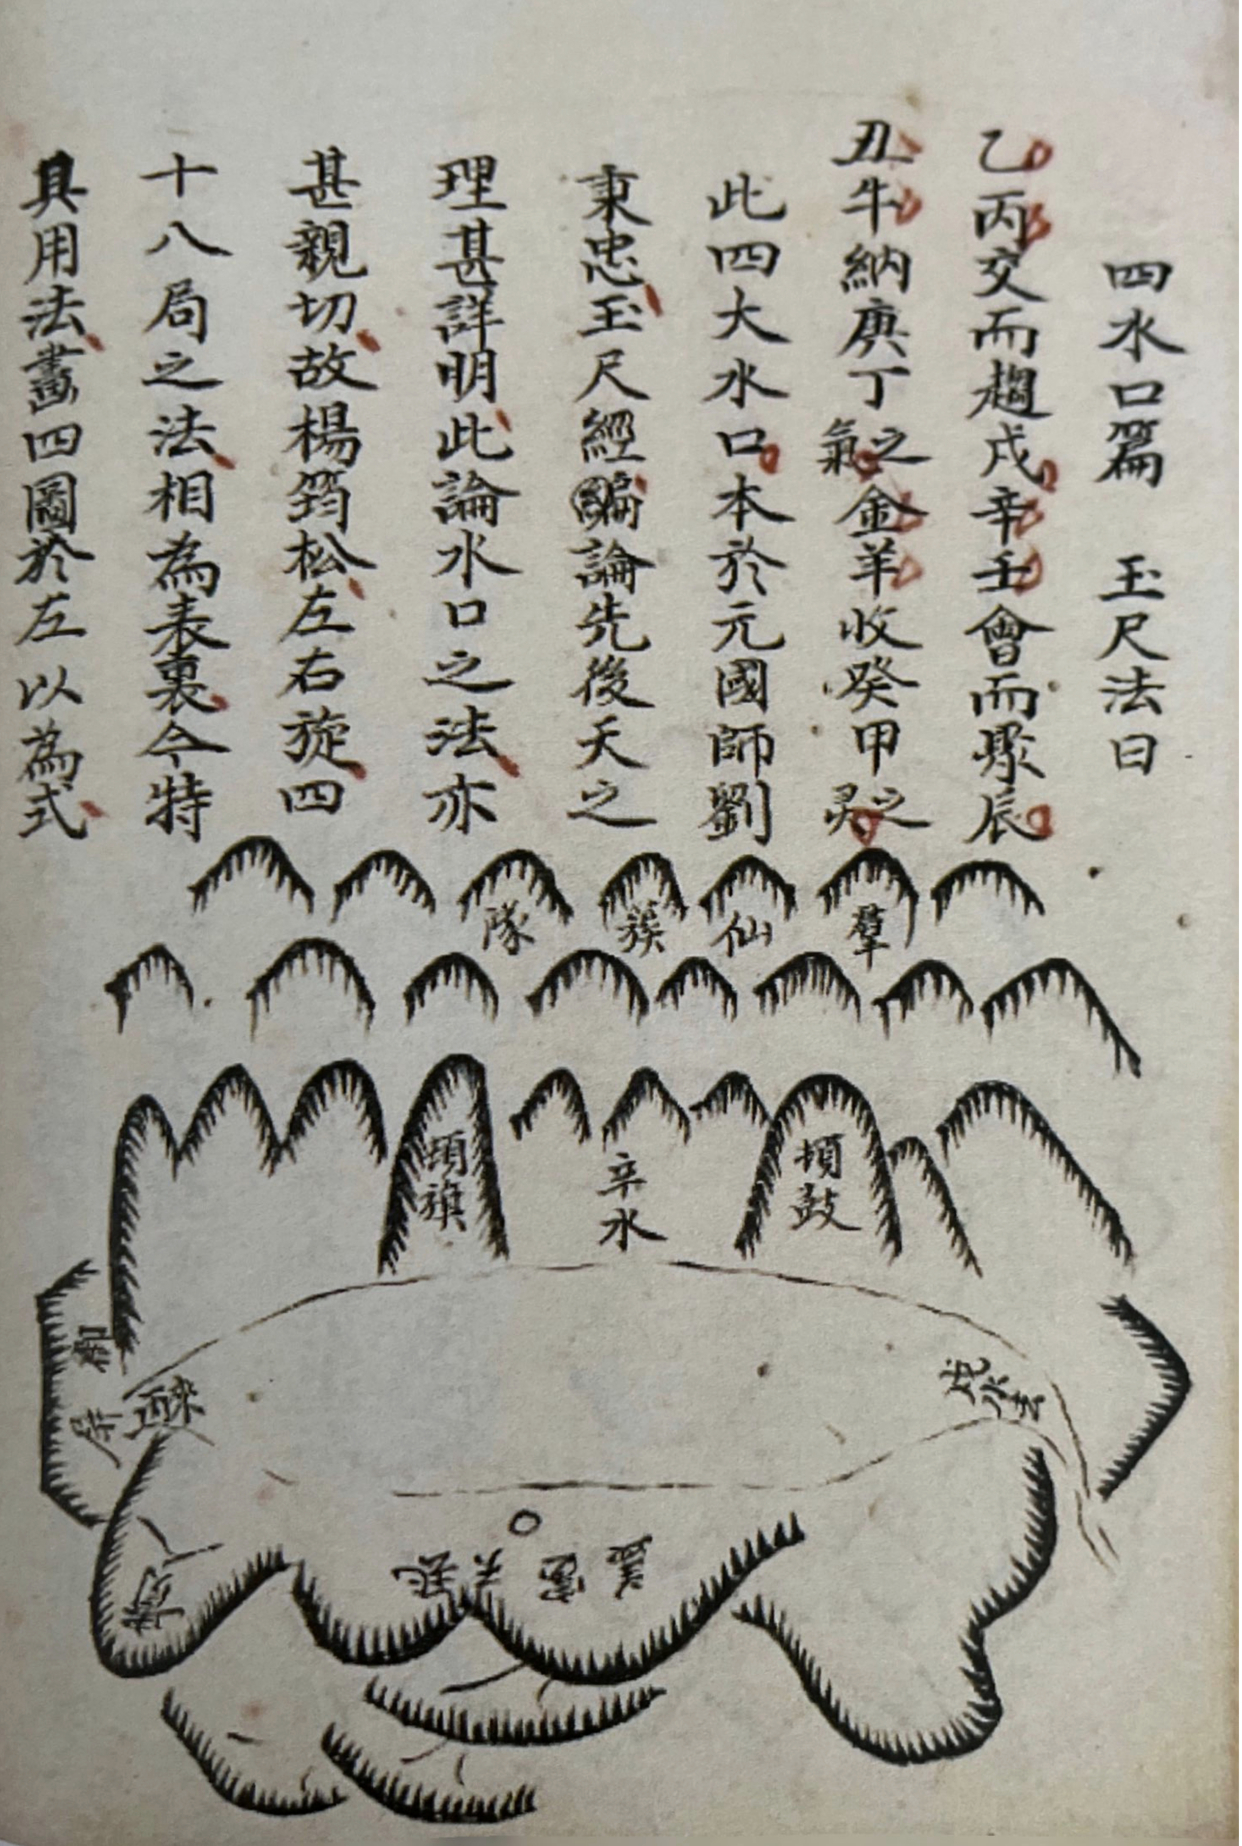 四水口篇 玉尺法曰
乙丙交而趨戌辛壬會而聚辰
丑牛納庚丁之氣金羊收癸甲之灵
此四大水口本於元國師劉
秉忠玉尺經編論先後天之
理甚詳明此論水口之法亦
甚親切故楊筠松左右旋四
十八局之法相為表裏今特
具用法畫四圖於左以為式
羣仙簇隊
頓鼓
辛水
頓旗
戌水去